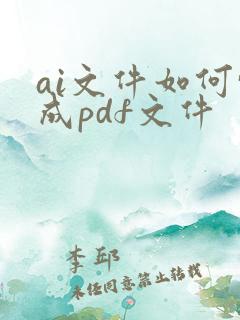 ai文件如何
成pdf文件
李邱
未经同意禁止转载